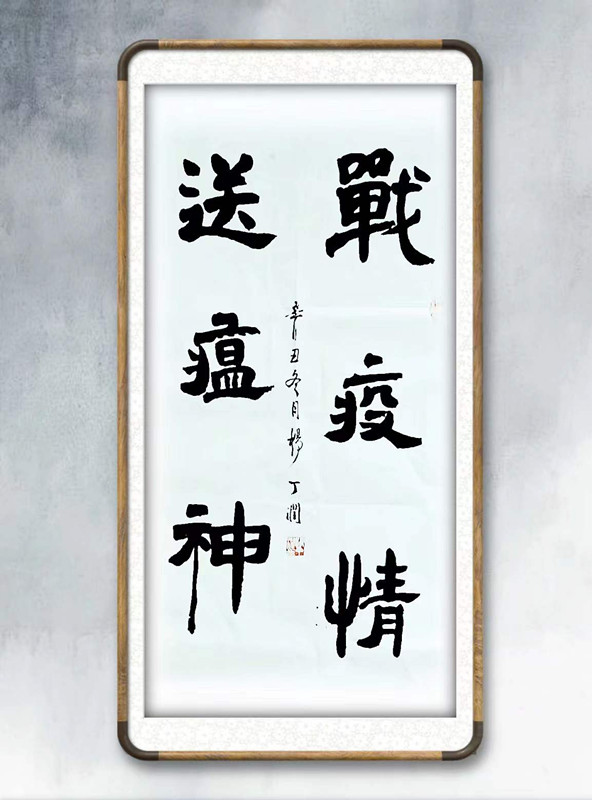 戰疫情
送瘟神
辛丑冬月楊丁瀾